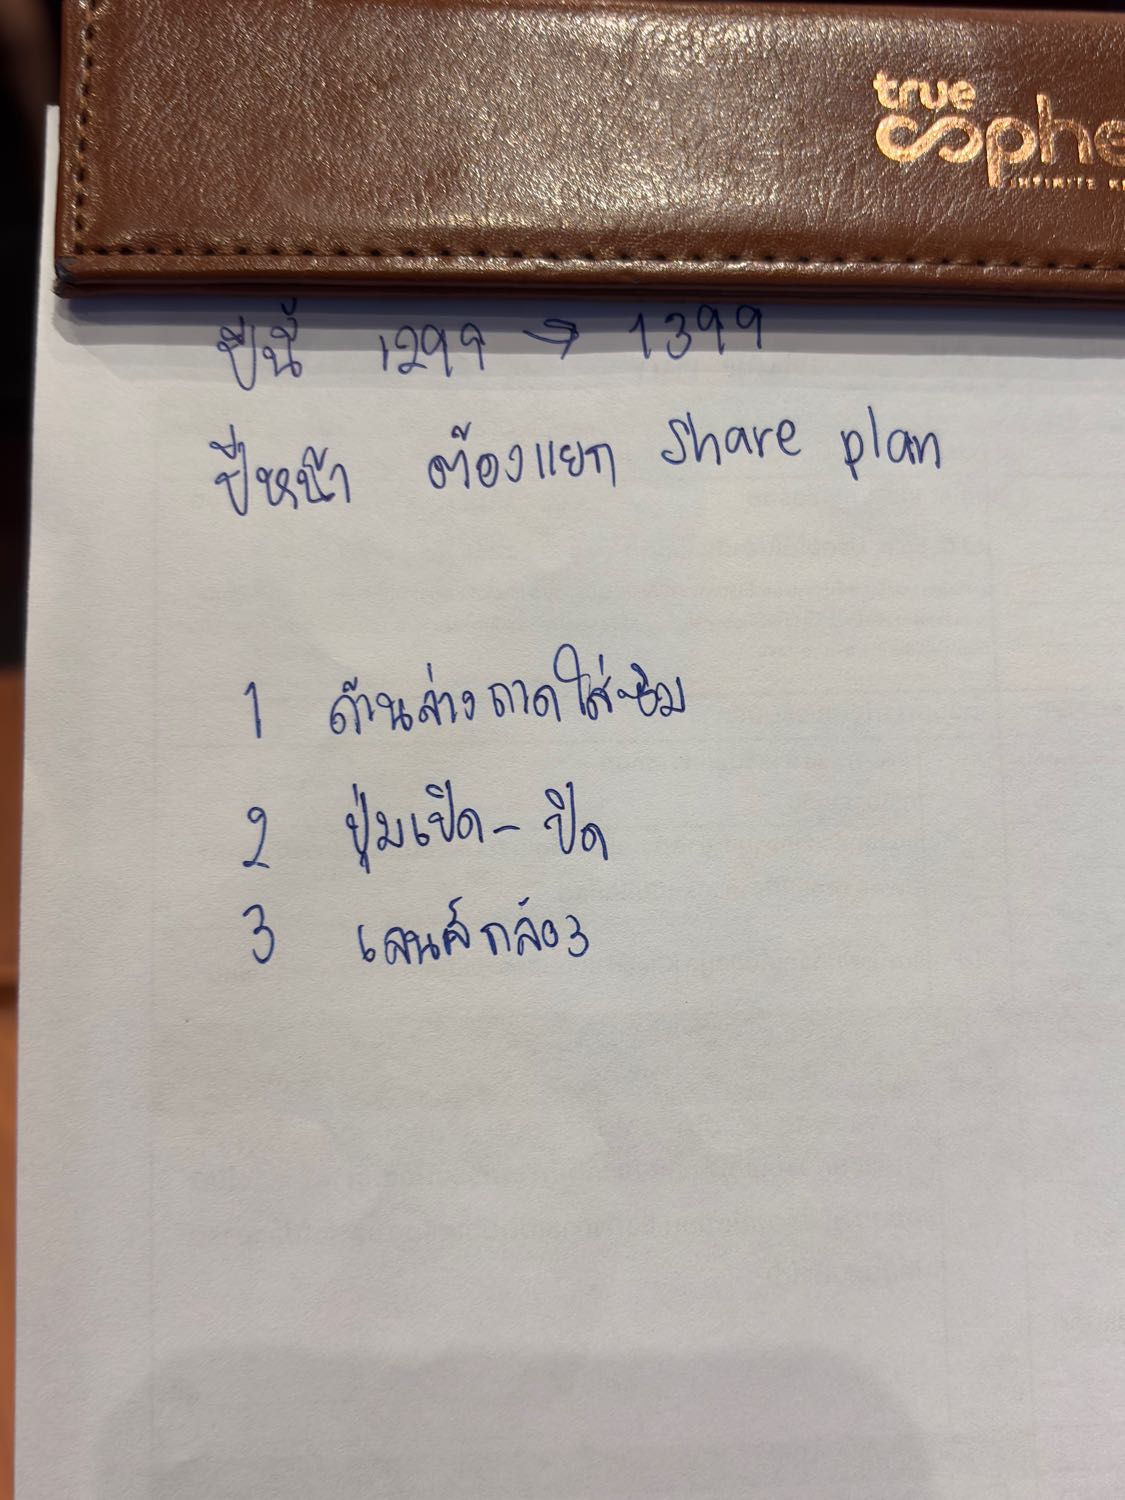 true
sphe
INFINITE
ปีนี้ 1299 → 1399
ปีหน้า ต้องแยก Share plan
1 ด้านล่างถาดใส่ซิม
2 ปุ่มเปิด - ปิด
3 เลนส์กล้อง